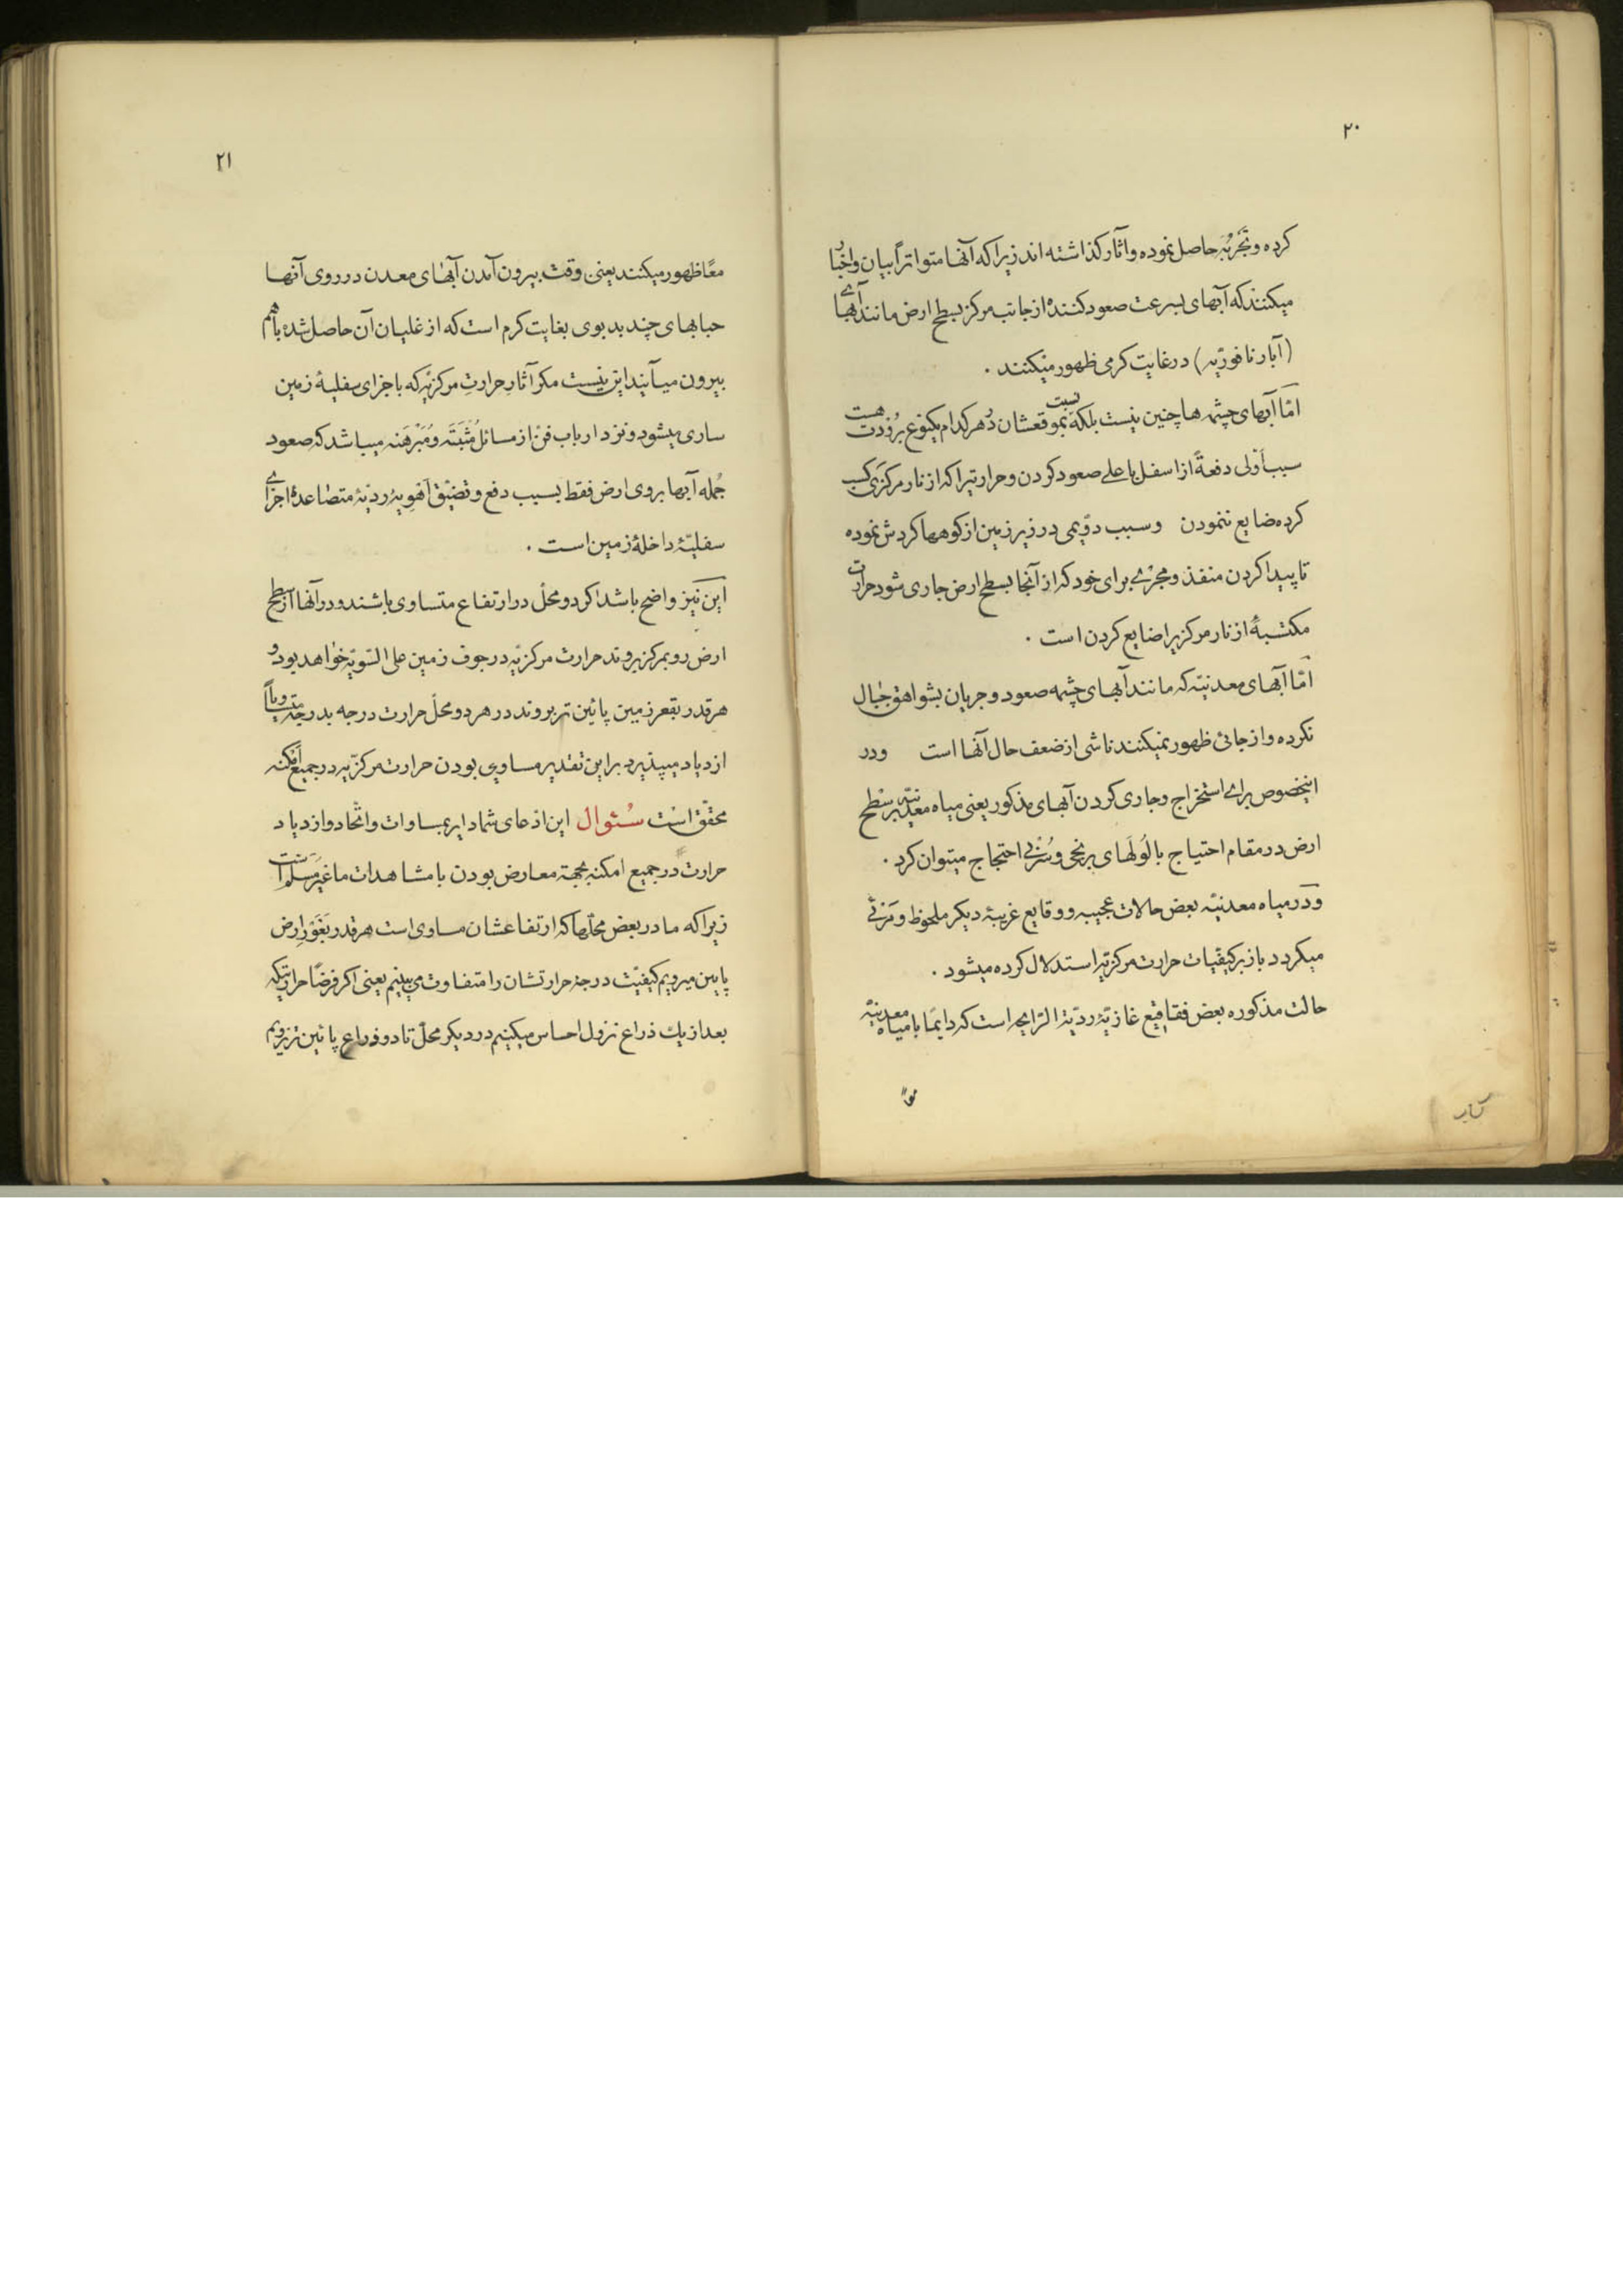 ٢٠
كرده و تَجْرُبَه حاصل نموده و آثار كذاشته اند زيرا كه آنها متواتراً بيان و اخبار
ميكنند كه آبهاى بسرعت صعود كنندهٔ از جانب مركز بسطح ارض مانند آبهاى
(آبار نافوريّه) در غايت كرمى ظهور ميكنند .
امّا آبهاى چشمه ها چنين نيست بلكه نسبت بموقعشان در هر كدام يكنوع برُودت هست
سبب اوّلى دفعةً از اسفل باعلى صعود كردن و حرارتيرا كه از نار مركزى كسب
كرده ضايع ننمودن و سبب دوّيمى در زير زمين از كوهها كردش نموده
تا پيدا كردن منفذ و مجرٰى براى خود كه از آنجا بسطح ارض جارى شود حرارت
مكتسبهٔ از نار مركزيرا ضايع كردن است .
امّا آبهاى معدنيّه كه مانند آبهاى چشمه صعود و جريان بشواهق جبال
نكرده و از جائى ظهور نميكنند ناشى از ضعف حال آنها است ودر
اينخصوص براى استخراج و جارى كردن آبهاى مذكور يعنى مياه معدنيّه بر سطح
ارض در مقام احتياج با لُولَهاى برنجى و سُرْبى احتجاج ميتوان كرد .
ودر مياه معدنيّه بعض حالات عجيبه و وقايع غريبهٔ ديكر ملحوظ و مَرْئى
ميكردد باز بر كيفيّات حرارت مركزيّه استدلال كرده ميشود .
حالت مذكوره بعض فقاقيع غازيّهٔ رديّة الرّايحه است كه دايمًا با مياه معدنيّه
معًا
٢١
معًا ظهور ميكنند يعنى وقت بيرون آمدن آبهاى معدن در روى آنها
حبابهاى چند بدبوى بغايت كرم است كه از غليان آن حاصل شده باهم
بيرون ميآيند اين نيست مكر آثار حرارتِ مركزيّه كه باجزاى سفليهٔ زمين
سارى ميشود و نزد ارباب فنّ از مسائل مُثْبَتَه و مُبَرْهَنه ميباشد كه صعود
جُمله آبها بروى ارض فقط بسبب دفع و تضيْق اَهْوِيهٔ رديّهٔ متصاعدهٔ اجزاى
سفليّهٔ داخلهٔ زمين است .
اين نيز واضح باشد اكر دو محلّ در ارتفاع متساوى باشند و در آنها از سطح
ارض رو بمركز بروند حرارت مركزيّه در جوف زمين على السّويّه خواهد بود و
هر قدر بقعر زمين پائين تر بروند در هر دو محلّ حرارت درجه بدرجه متساوياً
ازدياد ميپذيرد بر اين تقدير مساوى بودن حرارت مركزيّه در جميع اَمْكنه
محقّق است سُئوال اين ادّعاى شما داير بمساوات و اتّحاد و ازدياد
حرارت در جميع امكنه بجهة معارض بودن با مشاهدات ما غير مسلّم است
زيرا كه ما در بعض محلّها كه ارتفاعشان مساوى است هر قدر بغَوْر ارض
پايين ميرويم كيفيّت درجهٔ حرارتشان را متفاوت مى بينيم يعنى اكر فرضًا حرارتيكه
بعد از يك ذراع نزول احساس ميكنيم در ديكر محلّ تا دو ذراع پائين تر نرويم